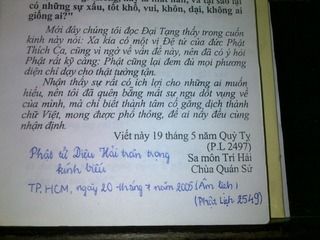 có những sự xấu, tốt khổ, vui, khôn, dại, không ai
giống ai?"
Mới đây chúng tôi đọc Đại Tạng thấy trong cuốn
kinh này nói: Xa kia có một vị Đệ tử của đức Phật
Thích Ca, cũng vì ngờ về vấn đề này, nên đã có ý hỏi
Phật rất kỹ càng: Phật cũng lại đem đủ mọi phương
diện chỉ dạy cho thật tường tận.
Nhận thấy sự rất có ích lợi cho những ai muốn
hiểu, nên tôi đã quên bẵng mất sự ngu dốt vụng về
của mình, mà chỉ biết thành tâm cố gắng dịch thành
chữ Việt, mong được phổ thông, để ai nấy đều cùng
nhận định.
Viết này 19 tháng 5 năm Quỷ Tỵ
(P.L 2497)
Sa môn Trí Hải
Chùa Quán Sứ
Phật tử Diệu Hải trân trọng
kính biếu
TP. HCM, ngày 20 tháng 7 năm 2005 (Âm lịch)
(Phật Lịch 2549)